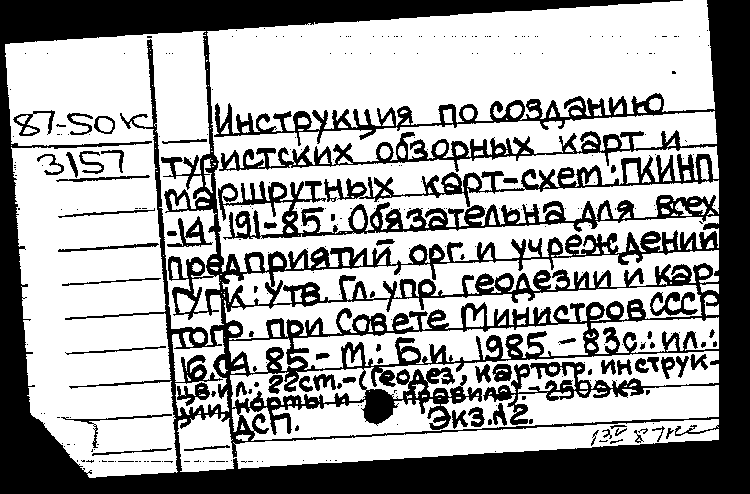 87-50к
3157
Инструкция по созданию
туристских обзорных карт и
маршрутных карт-схем: ГКИНП
-14-191-85: Обязательна для всех
предприятий, орг. и учреждений
ГУГК: Утв. Гл. упр. геодезии и кар-
тогр. при Совете Министров СССР
16.04.85.- М.: Б.и., 1985. - 83с.: ил.:
цв. ил.: 22см.-(Геодез., картогр. инструк-
ции, нормы и правила).- 250экз.
ДСП. Экз.№2.